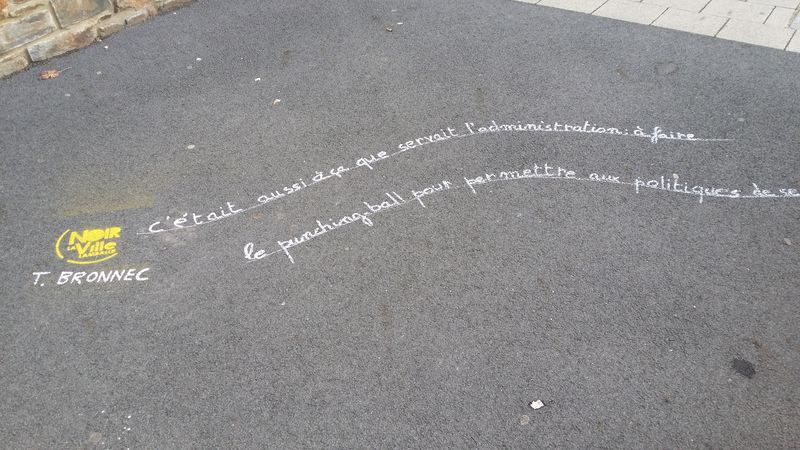 c'était aussi à ça que servait l'administration : à faire
le punching-ball pour permettre aux politiques de se
NOIR
LA
Ville
LAMBALLE
T. BRONNEC